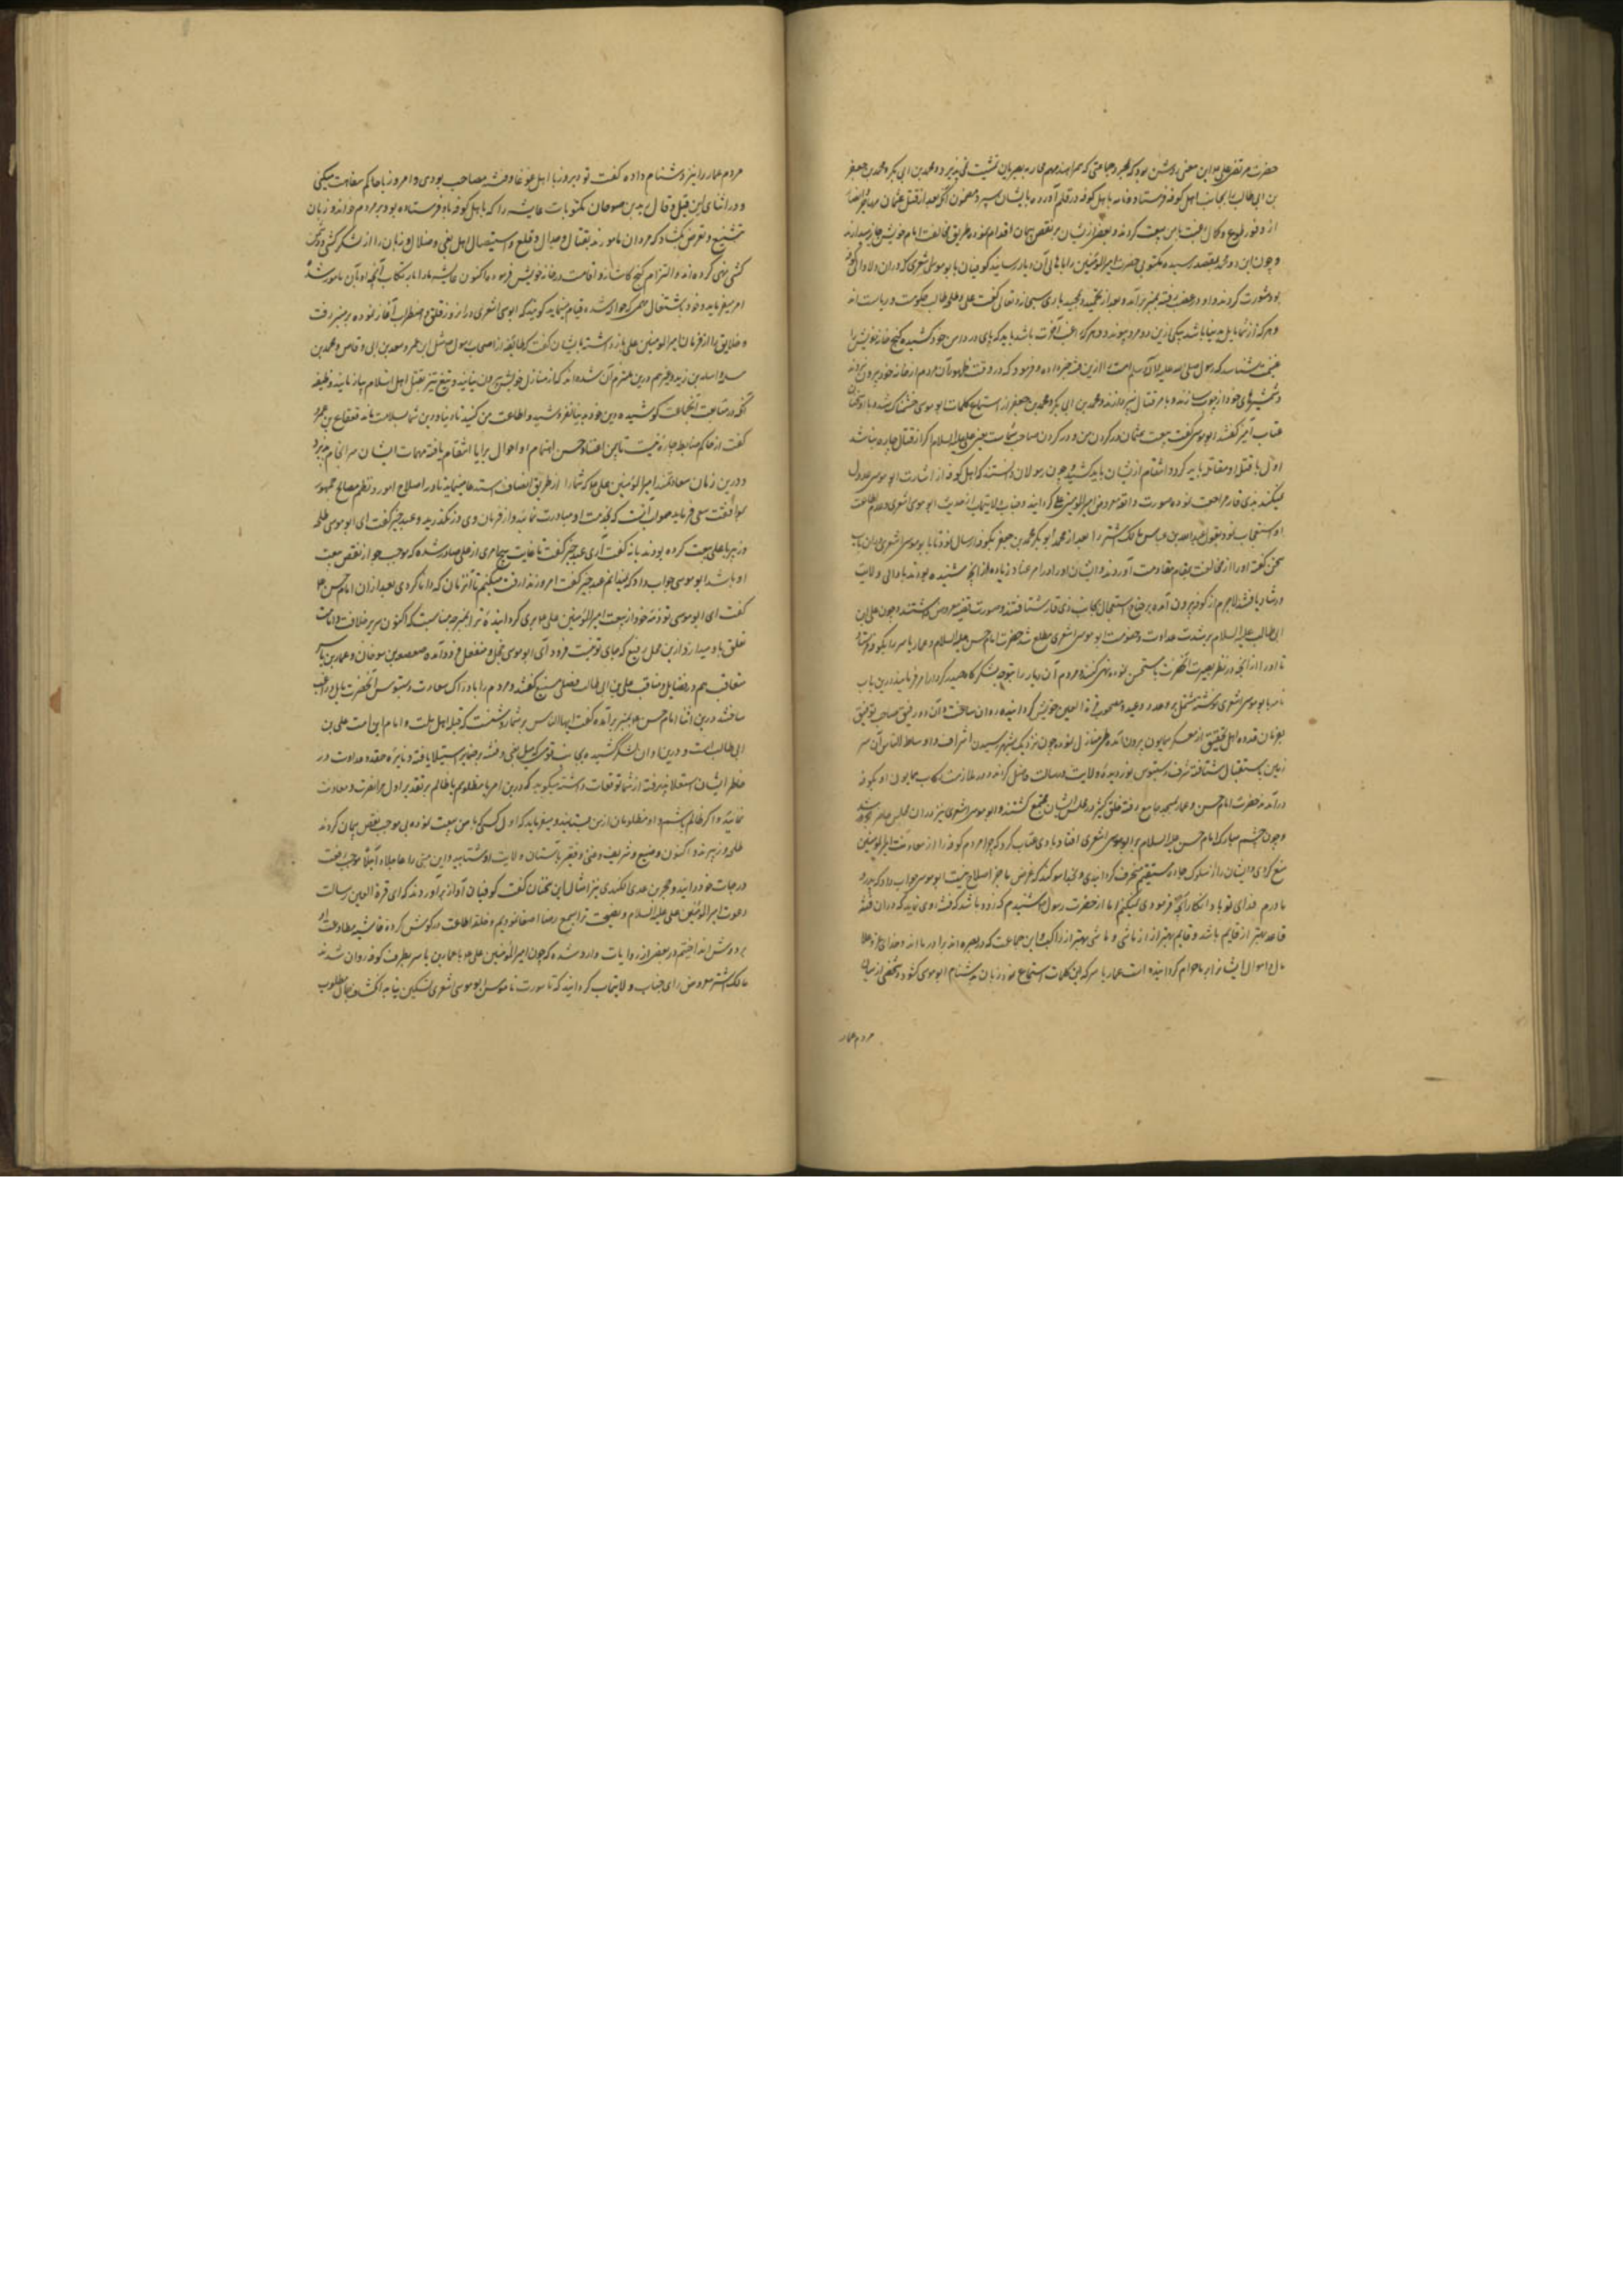 حضرت مرتضی علی این معنی روشن بود که بمجرد جماعتی که همراهند مهم محاربه بصریان تمشیت نمی پذیرد و محمد بن ابی بکر و محمد بن جعفر
بن ابی طالب را بجانب اهل کوفه فرستاد و نامه باهل کوفه در قلم آورده بایشان سپرد مضمون آنکه بعد از قتل عثمان مهاجر و انصار
از وفور طوع و کمال رغبت بامن بیعت کردند و بعضی از ایشان بر نقض پیمان اقدام نموده طریق مخالفت امام خویش
و چون این دو محمد بمقصد رسیده مکتوب حضرت امیرالمؤمنین را باهالی آن دیار رسانیدند کوفیان با ابو موسی اشعری که در ان ولا والی کوفه
بود مشورت کردند و او در غضب رفته بمنبر برآمد و بعد از تحمید و تمجید باری سبحانه و تعالی گفت علی و طلحه طالب حکومت و ریاست اند
و هر که از شما مایل بدنیا باشد بیکی ازین دو مرد پیوندد و هر که راغب آخرت باشد باید که پای در دامن خود کشیده کنج خانه خویش را
غنیمت شناسد که رسول صلی الله علیه و آله و سلم امت را ازین فتنه خبر داده و فرمود که در وقت ظهور آن مردم از خانه خود بیرون نروند
و شمشیرهای خود از چوب سازند و بامر قتال نپردازند و محمد بن ابی بکر و محمد بن جعفر از استماع کلمات ابو موسی خشمناک شده با او سخنان
عتاب آمیز گفتند ابو موسی گفت بیعت عثمان در گردن من و در گردن صاحب شماست یعنی علی علیه السلام اگر از قتال چاره نباشد
اول با قتله او مقاتله باید کرد و انتقام از ایشان باید کشید و چون رسولان دانستند که اهل کوفه از اشارت ابو موسی عدول
نمیکنند بذی قار مراجعت نموده صورت واقعه معروض امیرالمؤمنین علی گردانیدند و جناب ولایتمآب از حدیث ابو موسی اشعری و عدم اطاعت
او استعجاب نمود و بقول عبدالله بن عباس مالک اشتر را بعد از محمد ابو بکر و محمد بن جعفر بکوفه ارسال نمود تا با ابو موسی اشعری در ان باب
سخن گفته او را از مخالفت بمقام مقاومت آوردند و ایشان او را در امر عناد زیاده از آنچه شنیده بودند با والی ولایت
و رشاد یافتند لاجرم از کوفه بیرون آمده بر جناح استعجال بجانب ذی قار شتافتند و صورت قضیه معروض داشتند و چون علی بن
ابی طالب علیه السلام بر شدت عداوت و خصومت ابو موسی اشعری مطلع شد حضرت امام حسن علیه السلام و عمار یاسر را بکوفه فرستاد
تا او را از آنچه در نظر بصیرت آنحضرت مستحسن نموده نهی کنند و مردم آن دیار را بتوجه لشکرگاه حیدر کرار امر فرمایند درین باب
نامه با ابو موسی اشعری نوشته مشتمل بر وعد و وعید و مصحوب قرة العین خویش گردانیده روان ساخت و آن دو رفیق صاحب توفیق
بفرمان قدوه اهل تحقیق از معسکر همایون بیرون آمده طی منازل نموده چون نزدیک بشهر رسیدند اشراف و اوساط الناس آن سر
زمین باستقبال شتافته شرف دستبوس نوردیده ولایت و رسالت حاصل کردند و در ملازمت رکاب همایون او بکوفه
درآمدند حضرت امام حسن و عمار بمسجد جامع رفته خلق کثیر در مجلس ایشان مجتمع گشتند و ابو موسی اشعری نیز در ان مجلس حاضر
و چون چشم مبارک امام حسن علیه السلام بر ابو موسی اشعری افتاد با وی عتاب کرد که چرا مردم کوفه را از معاونت امیرالمؤمنین
منع کردی و ایشان را از سلوک جاده مستقیم منحرف گردانیدی و بخدا سوگند که غرض ما جز اصلاح نیست ابو موسی جواب داد که پدر و
مادرم فدای تو باد انکار آنچه فرمودی نمیکنم اما از حضرت رسول شنیدم که زود باشد که فتنه روی نماید که در ان فتنه
قاعد بهتر از قایم باشد و قایم بهتر از ماشی و ماشی بهتر از راکب و این جماعت که در بصره اند برادر ما اند و خدای عز و علا
مال و اموال ایشان را بر ما حرام گردانیده است عمار یاسر که این کلمات استماع نمود زبان بدشنام ابو موسی گشود و شخصی از میان
مردم عمار
مردم عمار را نیز دشنام داده گفت تو دیروز با اهل غوغا و فتنه مصاحب بودی و امروز با حاکم ما سفاهت میکنی
و در اثنای این قیل و قال زید بن صوحان مکتوبات عایشه را که باهل کوفه و باو فرستاده بود بر مردم خواند و زبان
تشنیع و تعرض بگشاد که مردان مامورند بقتال و جدال و قلع و استیصال اهل بغی و ضلال و زنان را از لشکرکشی و دشمن
کشی نهی کرده اند و التزام کنج کاشانه و اقامت در خانه خویش فرموده اکنون عایشه ما را بارتکاب آنچه او بآن مامور شده
امر میفرماید و خود باشتغال مهمی که حواله ما شده قیام مینماید گویند که ابو موسی اشعری در ان روز قلق و اضطراب آغاز نموده بر منبر رفت
و خلایق را از فرمان امیرالمؤمنین علی باز داشته بایشان گفت که طایفه از اصحاب رسول مثل ابن عمر و سعد بن ابی وقاص و محمد بن
مسلمه و اسامه بن زید و غیرهم درین عزم آن شده اند که از منازل خویش بیرون نیایند و تیغ تیز بقتل اهل اسلام نیازمایند وظیفه
آنکه در متابعت آنجماعت کوشیده دین خود بدنیا نفروشید و اطاعت من کنید تا دنیا و دین شما سلامت ماند قعقاع بن عمرو
گفت از حاکم ضابط چاره نیست تا بیمن اعتنا و حسن اهتمام او احوال برایا انتظام یافته مهمات ایشان سرانجام پذیرد
و درین زمان سعادتمند امیرالمؤمنین علی که شما را از طریق انصاف استدعا مینماید تا در اصلاح امور و نظم مصالح جمهور
موافقت سعی فرماید صواب آنست که بخدمت او مبادرت نمائید و از فرمان وی در نگذرید و عبد خیر گفت ای ابو موسی طلحه
و زبیر با علی بیعت کرده بودند یا نه گفت آری عبد خیر گفت تا غایت هیچ امری از علی صادر شده که موجب جواز نقض بیعت
او باشد ابو موسی جواب داد که نمیدانم عبد خیر گفت امروز ندانی ترک میکنیم تا آنزمان که دانا گردی بعد از ان امام حسن
گفت ای ابو موسی تو ذمه خود از بیعت امیرالمؤمنین علی بری گردانیده ترا بمنبر چه مناسبت که اکنون سریر خلافت و امامت
تعلق باو میدارد ازین محل رفیع که جای تو نیست فرود آی ابو موسی خجل و منفعل فرود آمده صعصعه بن صوحان و عمار بن یاسر
متعاقب هم در فضایل و مناقب علی بن ابی طالب فصلی مشبع گفتند و مردم را بادراک سعادت دستبوس آنحضرت مایل و راغب
ساختند درین اثنا امام حسن بمنبر برآمده گفت ایها الناس بر شما روشنست که قبله اهل ملت و امام این امت علی بن
ابی طالب است و درین اوان لشکر کشیده بجانب قومی که میل بغی و فتنه بر ضمایر استیلا یافته و نایره حقد و عداوت در
خاطر ایشان اشتعال پذیرفته از شما توقعات داشته میگوید که درین امر یا مظلومم یا ظالم بر تقدیر اول مرا نصرت و معاونت
نمائید و اگر ظالم باشم داد مظلومان از من بستانید و میفرماید که اول کسی که با من بیعت نموده بی موجب نقض پیمان کردند
طلحه و زبیرند و اکنون وضیع و شریف و غنی و فقیر باستان ولایت او شتابید و این معنی را عاجلا و آجلا موجب رفعت
درجات خود دانید و حجر بن عدی الکندی نیز امثال این سخنان گفت کوفیان آواز برآوردند که ای قرة العین رسالت
دعوت امیرالمؤمنین علی علیه السلام و نصیحت ترا بسمع رضا اصغا نمودیم و حلقه اطاعت در گوش کرده غاشیه مطاوعت او
بر دوش انداختیم و در بعضی از روایات وارد شده که چون امیرالمؤمنین علی با عمار بن یاسر بطرف کوفه روان شدند
مالک اشتر معروض رای جناب ولایتمآب گردانید که تا صورت ناموس ابو موسی اشعری تسکین نیابد انکشاف جمال مطلوب